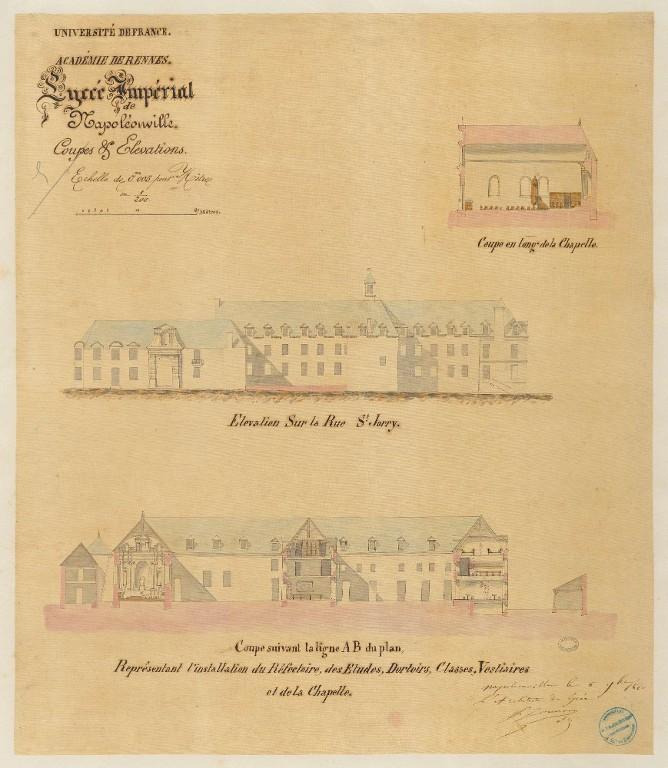 UNIVERSITÉ DE FRANCE.
ACADÉMIE DE RENNES.
Lycée Impérial
de
Napoléonville.
Coupes & Elevations.
Echelle de 0m005 pour Mètre
ou 1/200
Coupe en longr de la Chapelle.
Elevation Sur la Rue St Jorry.
Coupe suivant la ligne A B du plan,
Représentant l'installation du Réfectoire, des Etudes, Dortoirs, Classes, Vestiaires
et de la Chapelle.
Napoléonville le 6
l'Architecte du Lycée